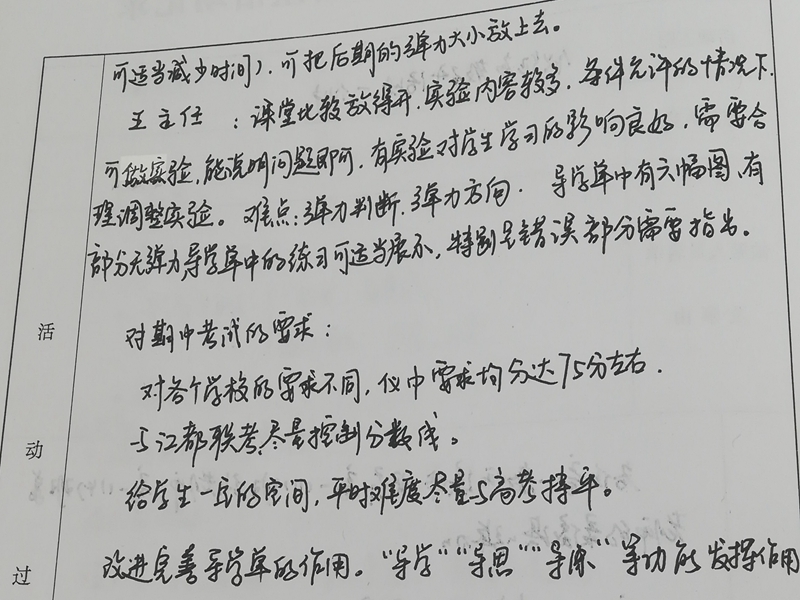 可适当减少时间），可把后期的弹力大小放上去。
王主任：课堂比较放得开，实验内容较多，条件允许的情况下，
可做实验，能说明问题即可，有实验对学生学习的影响良好，需要合
理调整实验。难点：弹力判断，弹力方向．导学单中有六幅图，有
部分无弹力，导学单中的练习可适当展示，特别是错误部分需要指出。
对期中考试的要求：
活
对各个学校的要求不同，仪中要求均分达75分左右．
与江都联考，尽量控制分数线。
动
给学生一定的空间，平时难度尽量与高考持平。
改进完善导学单的作用。“导学”“导思”“导练”等功能发挥作用
过